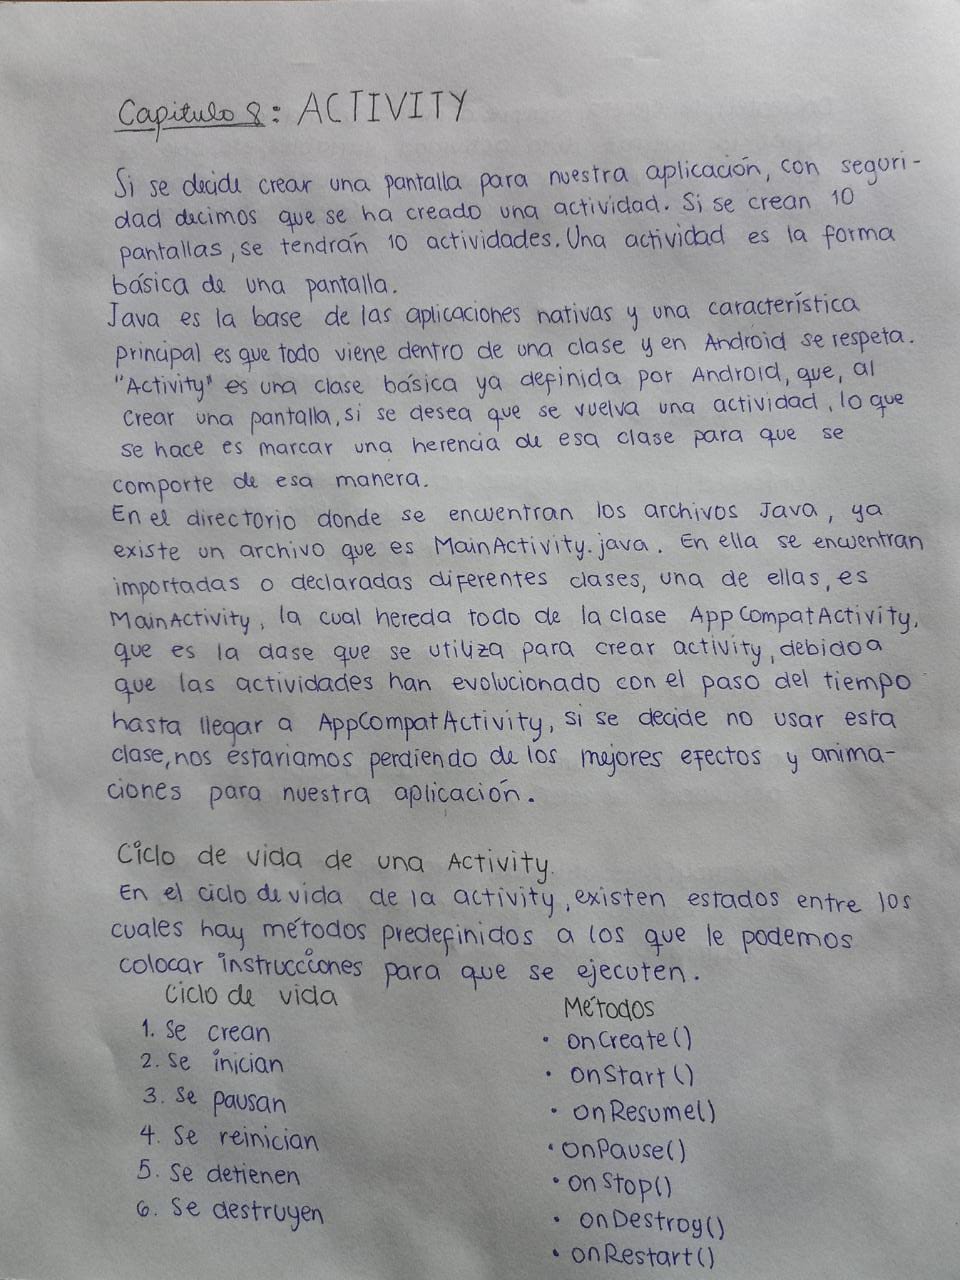 Capitulo 8: ACTIVITY
Si se decide crear una pantalla para nuestra aplicación, con seguri-
dad decimos que se ha creado una actividad. Si se crean 10
pantallas, se tendrán 10 actividades. Una actividad es la forma
básica de una pantalla.
Java es la base de las aplicaciones nativas y una característica
principal es que todo viene dentro de una clase y en Android se respeta.
"Activity" es una clase básica ya definida por Android, que, al
crear una pantalla, si se desea que se vuelva una actividad, lo que
se hace es marcar una herencia de esa clase para que se
comporte de esa manera.
En el directorio donde se encuentran los archivos Java, ya
existe un archivo que es MainActivity.java. En ella se encuentran
importadas o declaradas diferentes clases, una de ellas, es
MainActivity, la cual hereda todo de la clase AppCompatActivity,
que es la clase que se utiliza para crear activity, debido a
que las actividades han evolucionado con el paso del tiempo
hasta llegar a AppCompatActivity, si se decide no usar esta
clase, nos estariamos perdiendo de los mejores efectos y anima-
ciones para nuestra aplicación.
Ciclo de vida de una Activity.
En el ciclo de vida de la activity, existen estados entre los
cuales hay métodos predefinidos a los que le podemos
colocar instrucciones para que se ejecuten.
Ciclo de vida
1. Se crean
2. Se inician
3. Se pausan
4. Se reinician
5. Se detienen
6. Se destruyen
Métodos
• onCreate()
• onStart()
• onResume()
• onPause()
• onStop()
• onDestroy()
• onRestart()